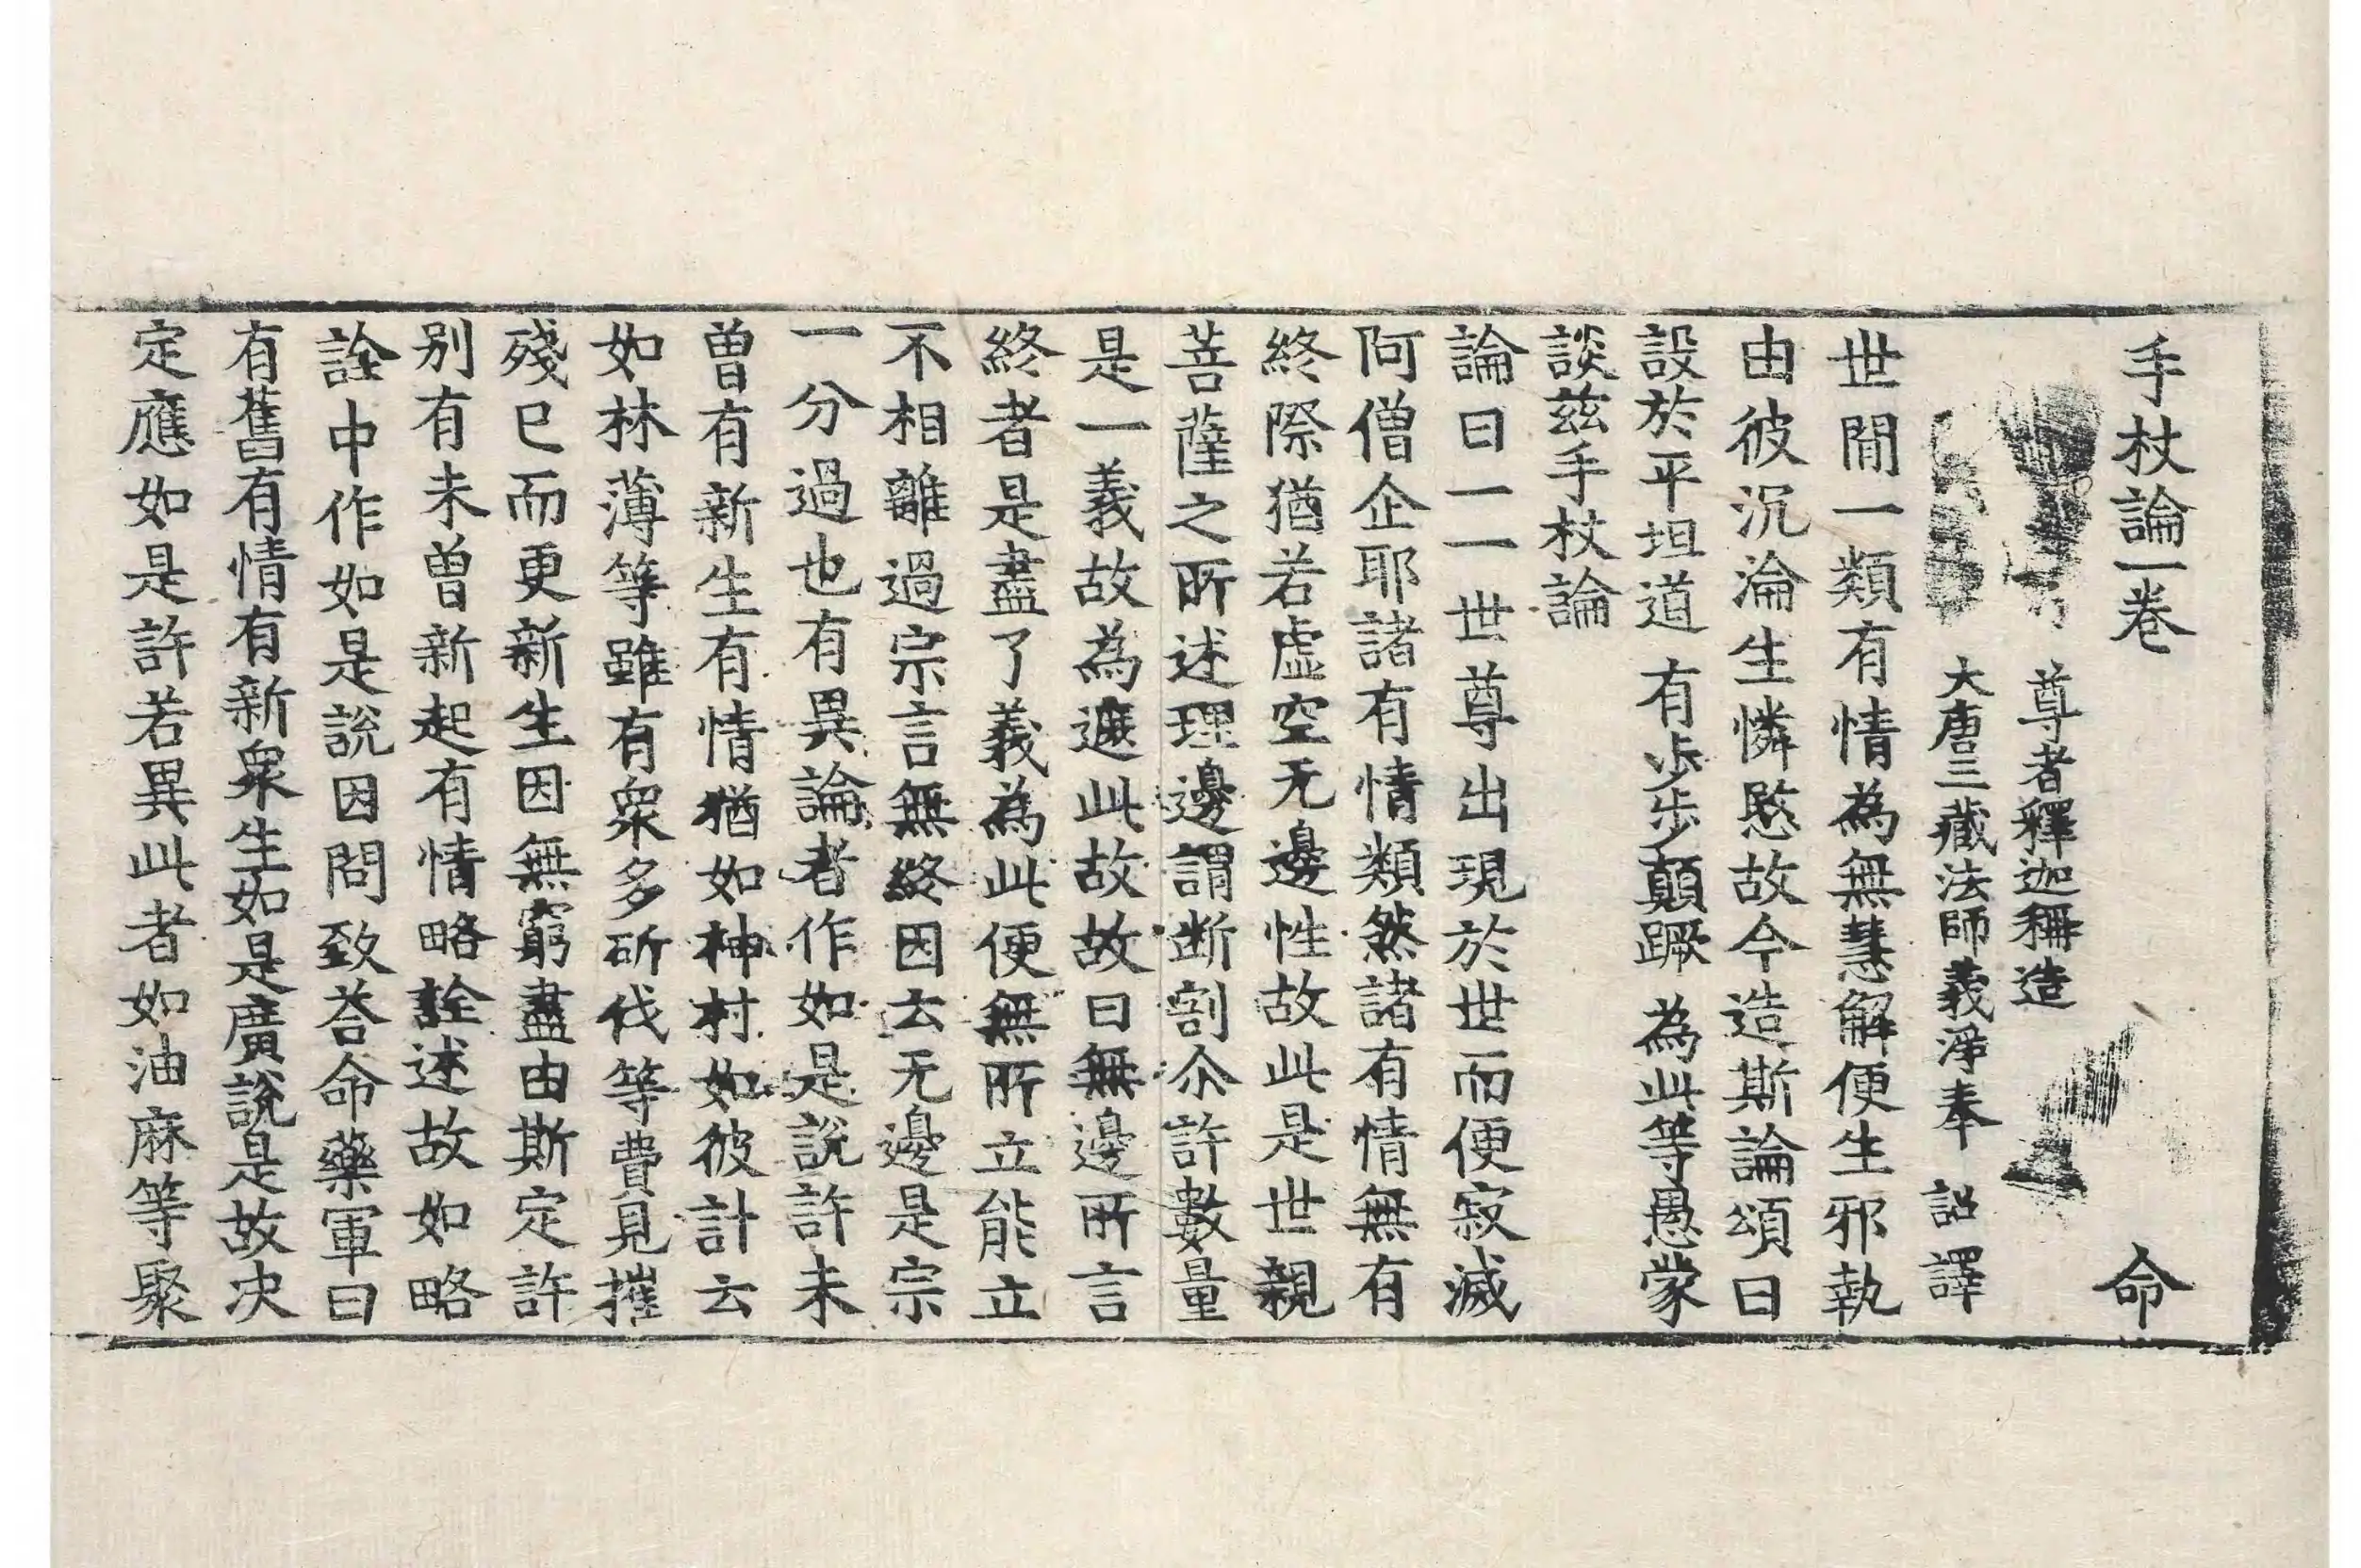 手杖論一卷　命
尊者釋迦稱造
大唐三藏法師義淨奉　詔譯
世閒一類有情為無慧解便生邪執
由彼沉淪生憐愍故今造斯論頌曰
設於平坦道　有步步顛蹶　為此等愚蒙
談茲手杖論
論曰一一世尊出現於世而便寂滅
阿僧企耶諸有情類然諸有情無有
終際猶若虛空无邊性故此是世親
菩薩之所述理邊謂斷割尒許數量
是一義故為遮此故故曰無邊所言
終者是盡了義為此便無所立能立
不相離過宗言無終因云无邊是宗
一分過也有異論者作如是說許未
曾有新生有情猶如神村如彼計云
如林薄等雖有衆多斫伐等費見摧
殘已而更新生因無窮盡由斯定許
別有未曾新起有情略詮述故如略
詮中作如是說因問致荅命藥軍曰
有舊有情有新衆生如是廣說是故決
定應如是許若異此者如油麻等聚